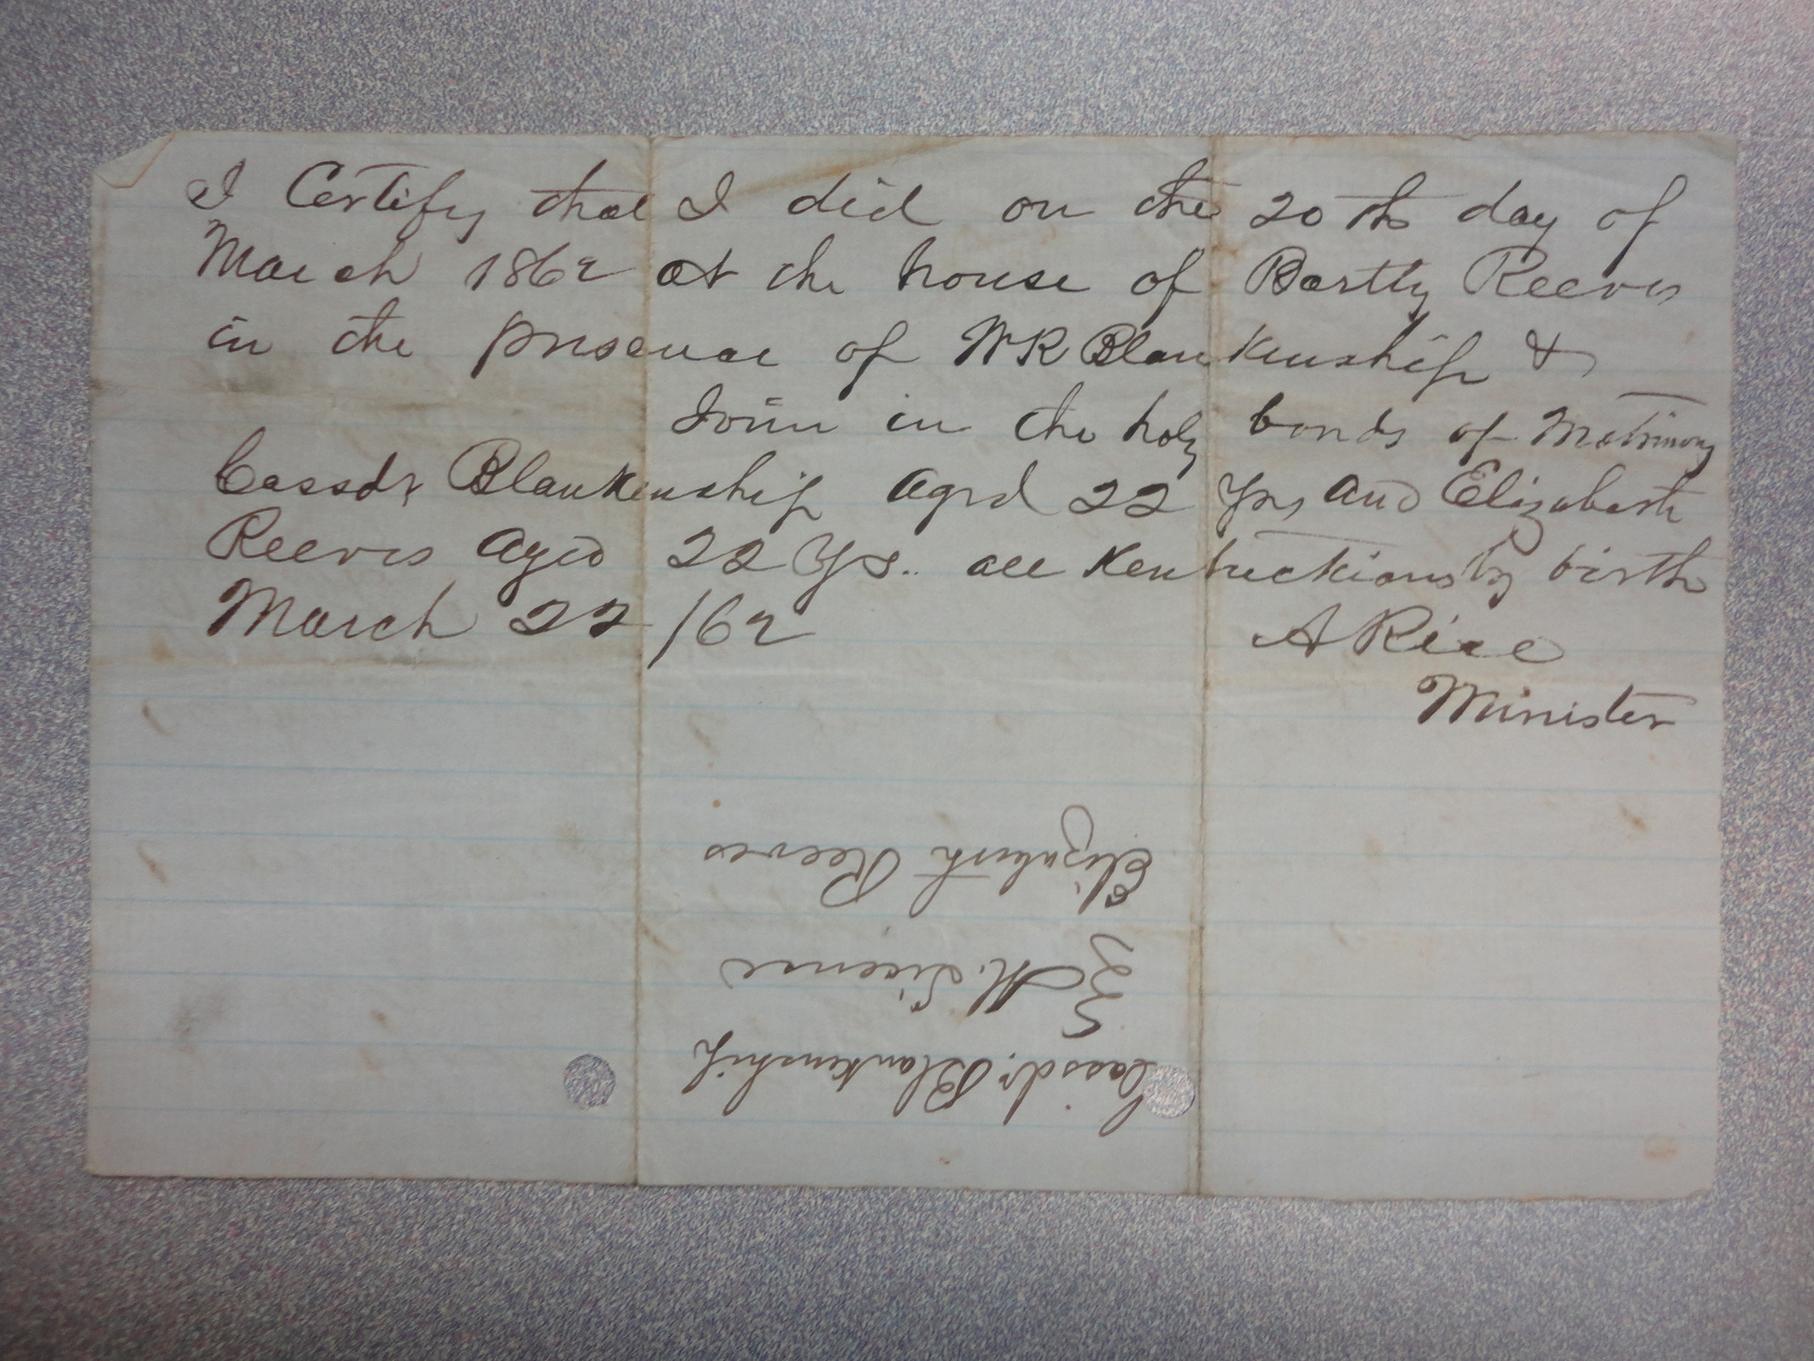 I Certify that I did on the 20th day of
March 1862 at the house of Bartly Reeves
in the presence of W R Blankenship &
Join in the holy bonds of Matrimony
Cassdr Blankenship aged 22 yrs and Elizabeth
Reeves aged 22 ys.. all Kentuckians by birth
March 22/62 A Rice
Minister
Cassdr. Blankenship
M. License
Elizabeth Reeves